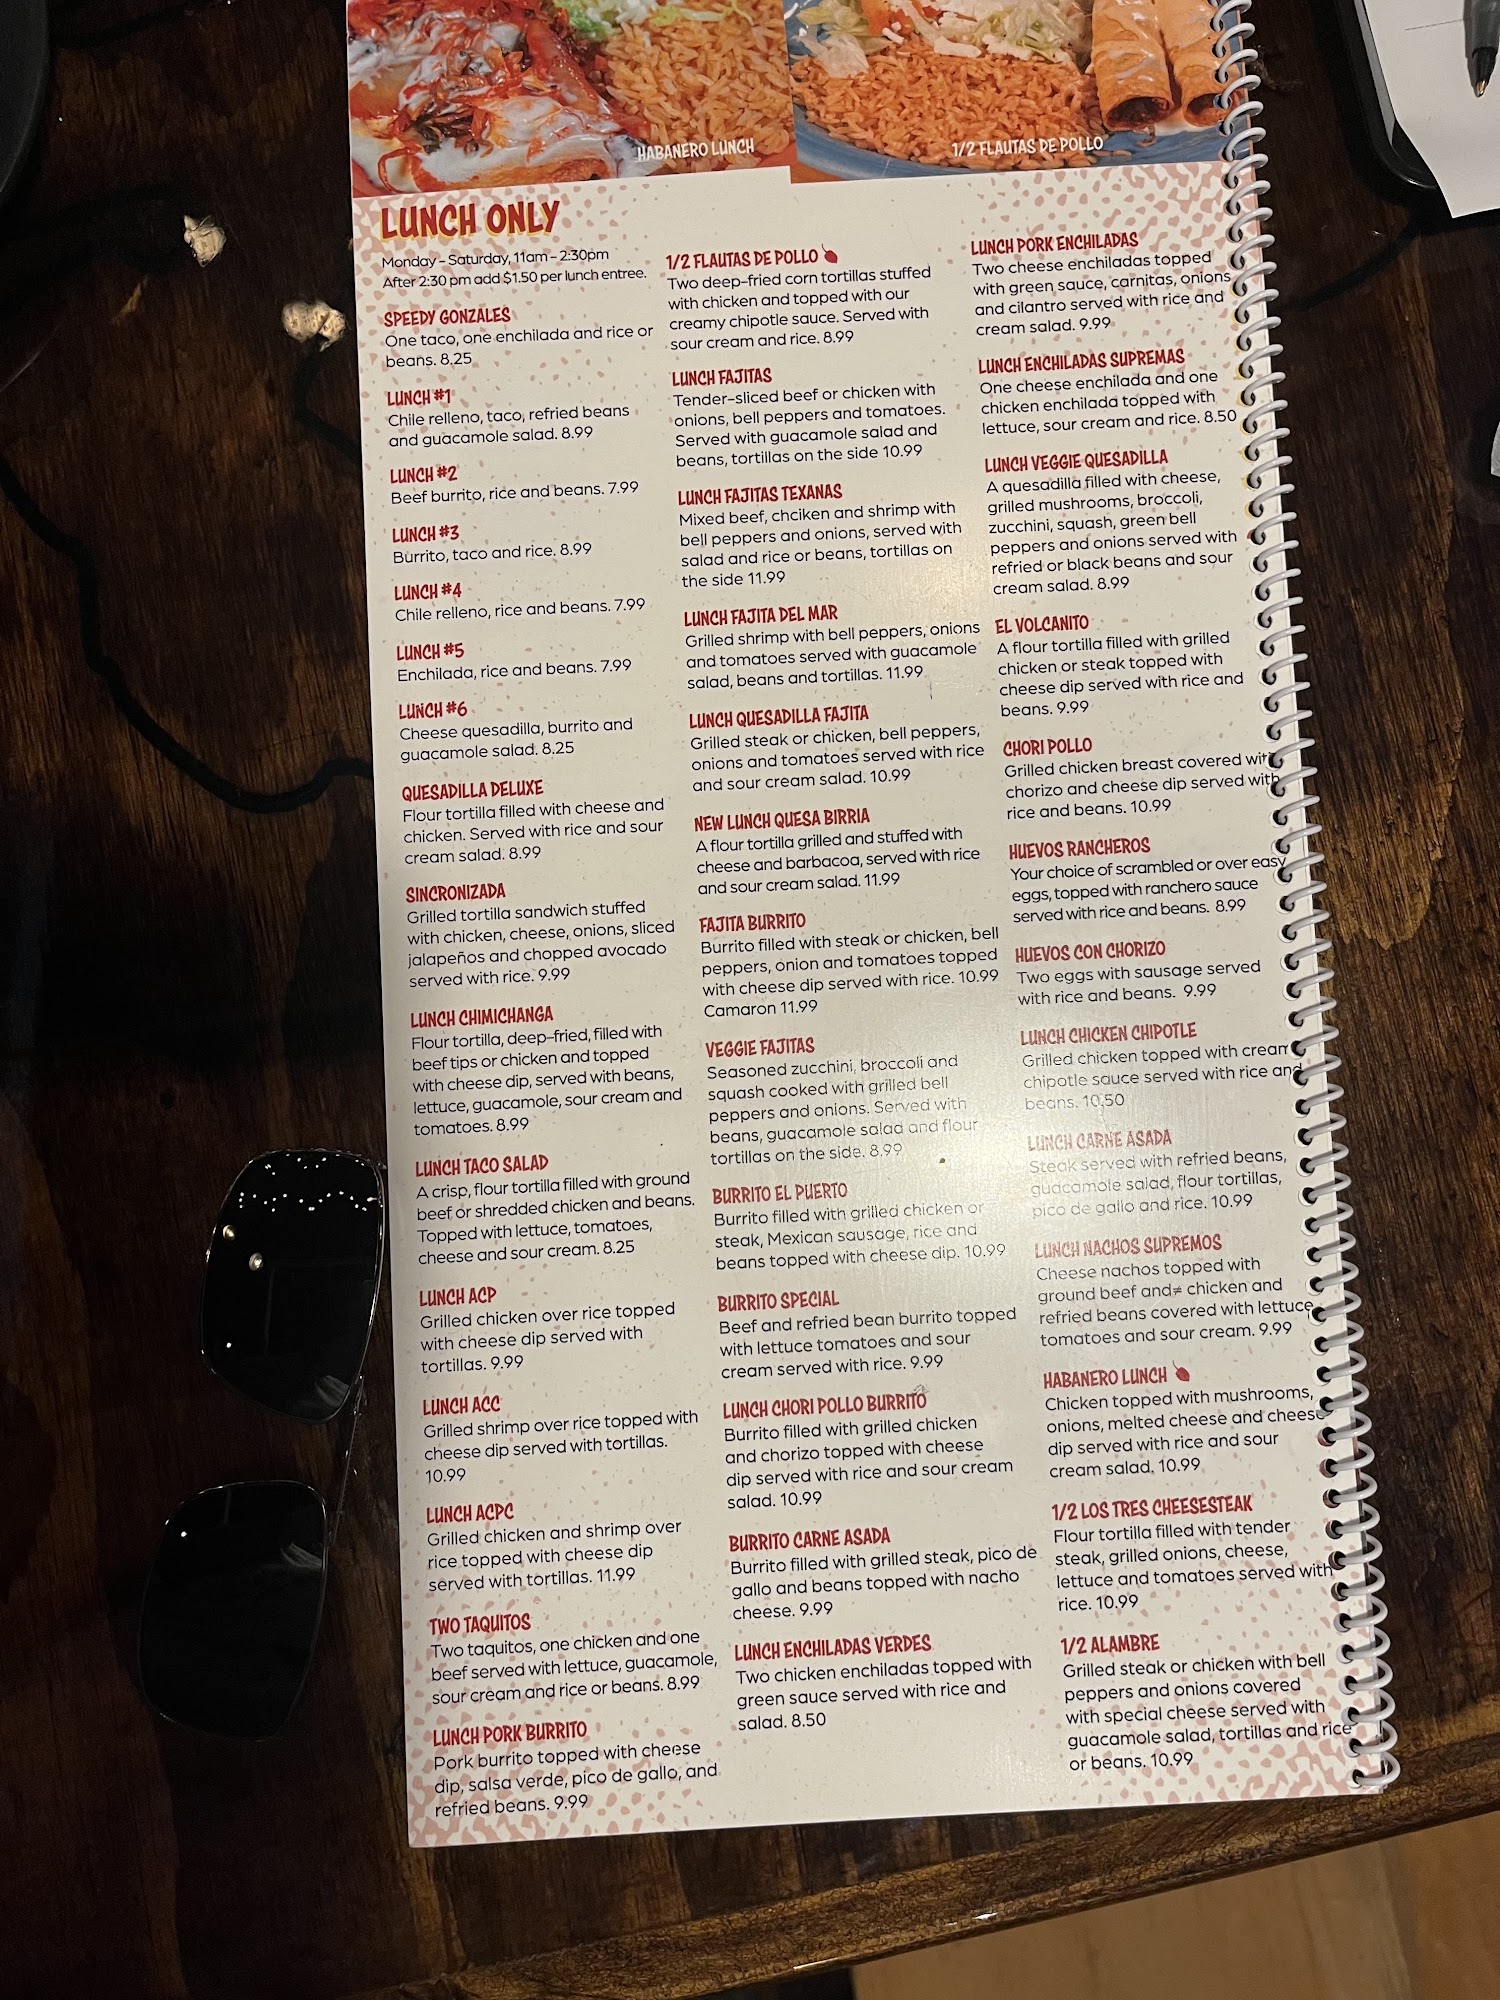 HABANERO LUNCH
1/2 FLAUTAS DE POLLO
LUNCH ONLY
Monday - Saturday, 11am - 2:30pm
After 2:30 pm add $1.50 per lunch entree.
SPEEDY GONZALES
One taco, one enchilada and rice or
beans. 8.25
LUNCH #1
Chile relleno, taco, refried beans
and guacamole salad. 8.99
LUNCH #2
Beef burrito, rice and beans. 7.99
LUNCH #3
Burrito, taco and rice. 8.99
LUNCH #4
Chile relleno, rice and beans. 7.99
LUNCH #5
Enchilada, rice and beans. 7.99
LUNCH #6
Cheese quesadilla, burrito and
guacamole salad. 8.25
QUESADILLA DELUXE
Flour tortilla filled with cheese and
chicken. Served with rice and sour
cream salad. 8.99
SINCRONIZADA
Grilled tortilla sandwich stuffed
with chicken, cheese, onions, sliced
jalapeños and chopped avocado
served with rice. 9.99
LUNCH CHIMICHANGA
Flour tortilla, deep-fried, filled with
beef tips or chicken and topped
with cheese dip, served with beans,
lettuce, guacamole, sour cream and
tomatoes. 8.99
LUNCH TACO SALAD
A crisp, flour tortilla filled with ground
beef or shredded chicken and beans.
Topped with lettuce, tomatoes,
cheese and sour cream. 8.25
LUNCH ACP
Grilled chicken over rice topped
with cheese dip served with
tortillas. 9.99
LUNCH ACC
Grilled shrimp over rice topped with
cheese dip served with tortillas.
10.99
LUNCH ACPC
Grilled chicken and shrimp over
rice topped with cheese dip
served with tortillas. 11.99
TWO TAQUITOS
Two taquitos, one chicken and one
beef served with lettuce, guacamole,
sour cream and rice or beans. 8.99
LUNCH PORK BURRITO
Pork burrito topped with cheese
dip, salsa verde, pico de gallo, and
refried beans. 9.99
1/2 FLAUTAS DE POLLO
Two deep-fried corn tortillas stuffed
with chicken and topped with our
creamy chipotle sauce. Served with
sour cream and rice. 8.99
LUNCH FAJITAS
Tender-sliced beef or chicken with
onions, bell peppers and tomatoes.
Served with guacamole salad and
beans, tortillas on the side 10.99
LUNCH FAJITAS TEXANAS
Mixed beef, chciken and shrimp with
bell peppers and onions, served with
salad and rice or beans, tortillas on
the side 11.99
LUNCH FAJITA DEL MAR
Grilled shrimp with bell peppers, onions
and tomatoes served with guacamole
salad, beans and tortillas. 11.99
LUNCH QUESADILLA FAJITA
Grilled steak or chicken, bell peppers,
onions and tomatoes served with rice
and sour cream salad. 10.99
NEW LUNCH QUESA BIRRIA
A flour tortilla grilled and stuffed with
cheese and barbacoa, served with rice
and sour cream salad. 11.99
FAJITA BURRITO
Burrito filled with steak or chicken, bell
peppers, onion and tomatoes topped
with cheese dip served with rice. 10.99
Camaron 11.99
VEGGIE FAJITAS
Seasoned zucchini, broccoli and
squash cooked with grilled bell
peppers and onions. Served with
beans, guacamole salad and flour
tortillas on the side. 8.99
BURRITO EL PUERTO
Burrito filled with grilled chicken or
steak, Mexican sausage, rice and
beans topped with cheese dip. 10.99
BURRITO SPECIAL
Beef and refried bean burrito topped
with lettuce tomatoes and sour
cream served with rice. 9.99
LUNCH CHORI POLLO BURRITO
Burrito filled with grilled chicken
and chorizo topped with cheese
dip served with rice and sour cream
salad. 10.99
BURRITO CARNE ASADA
Burrito filled with grilled steak, pico de
gallo and beans topped with nacho
cheese. 9.99
LUNCH ENCHILADAS VERDES
Two chicken enchiladas topped with
green sauce served with rice and
salad. 8.50
LUNCH PORK ENCHILADAS
Two cheese enchiladas topped
with green sauce, carnitas, onions
and cilantro served with rice and
cream salad. 9.99
LUNCH ENCHILADAS SUPREMAS
One cheese enchilada and one
chicken enchilada topped with
lettuce, sour cream and rice. 8.50
LUNCH VEGGIE QUESADILLA
A quesadilla filled with cheese,
grilled mushrooms, broccoli,
zucchini, squash, green bell
peppers and onions served with
refried or black beans and sour
cream salad. 8.99
EL VOLCANITO
A flour tortilla filled with grilled
chicken or steak topped with
cheese dip served with rice and
beans. 9.99
CHORI POLLO
Grilled chicken breast covered with
chorizo and cheese dip served with
rice and beans. 10.99
HUEVOS RANCHEROS
Your choice of scrambled or over easy
eggs, topped with ranchero sauce
served with rice and beans. 8.99
HUEVOS CON CHORIZO
Two eggs with sausage served
with rice and beans. 9.99
LUNCH CHICKEN CHIPOTLE
Grilled chicken topped with cream
chipotle sauce served with rice and
beans. 10.50
LUNCH CARNE ASADA
Steak served with refried beans,
guacamole salad, flour tortillas,
pico de gallo and rice. 10.99
LUNCH NACHOS SUPREMOS
Cheese nachos topped with
ground beef and≠ chicken and
refried beans covered with lettuce
tomatoes and sour cream. 9.99
HABANERO LUNCH
Chicken topped with mushrooms,
onions, melted cheese and cheese
dip served with rice and sour
cream salad. 10.99
1/2 LOS TRES CHEESESTEAK
Flour tortilla filled with tender
steak, grilled onions, cheese,
lettuce and tomatoes served with
rice. 10.99
1/2 ALAMBRE
Grilled steak or chicken with bell
peppers and onions covered
with special cheese served with
guacamole salad, tortillas and rice
or beans. 10.99